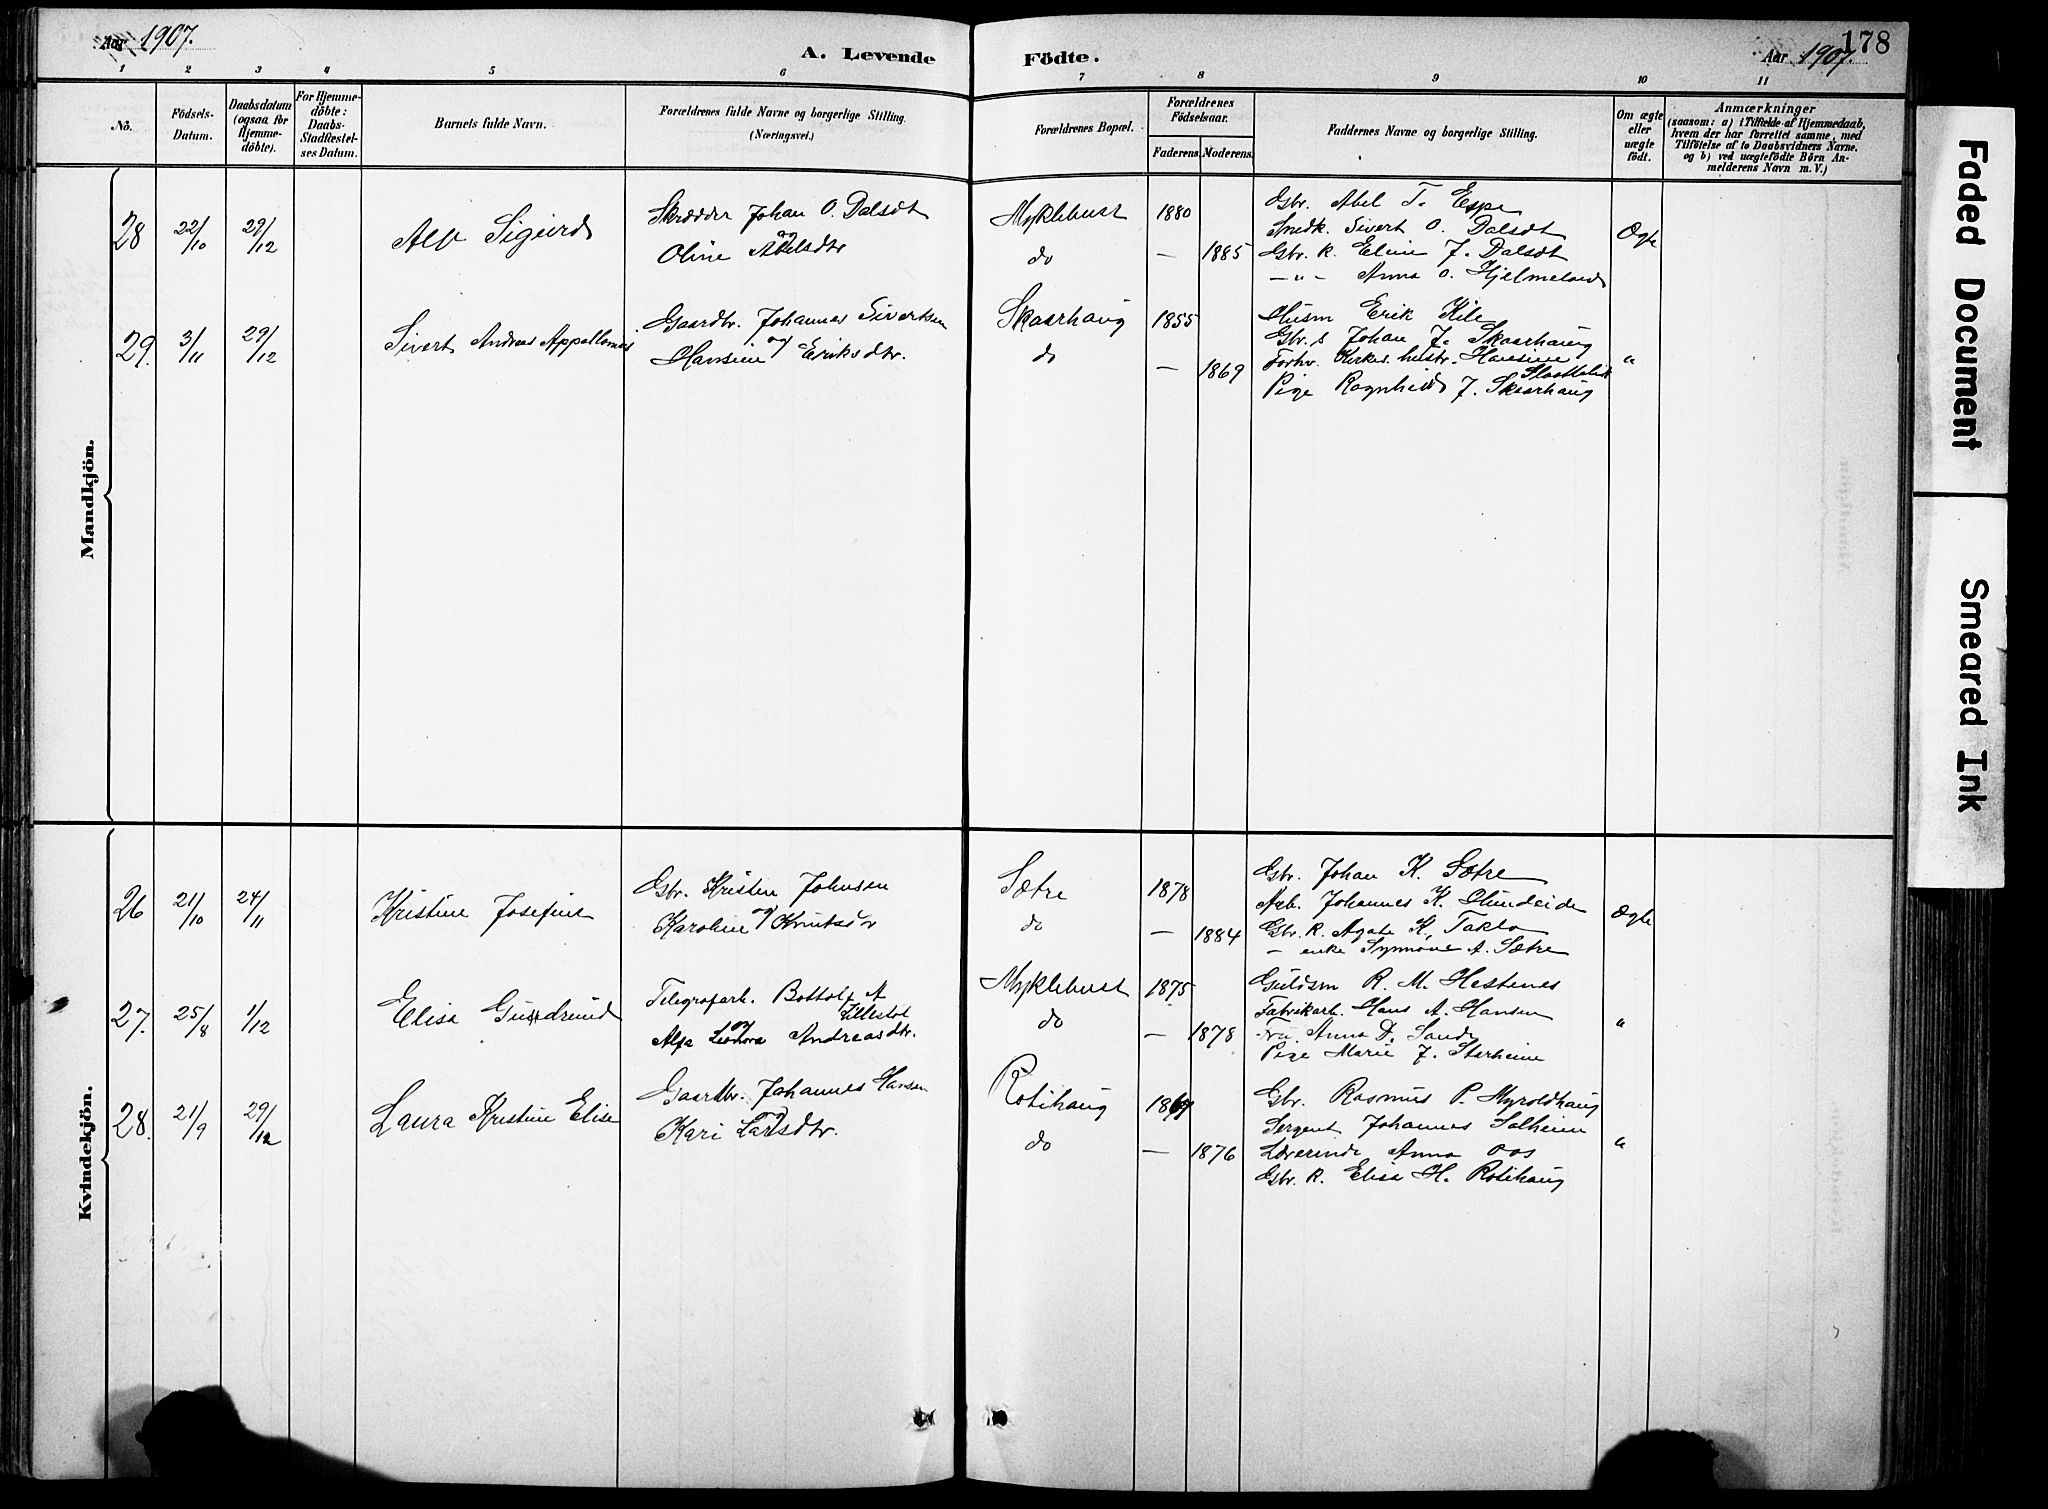 Aar 1907.
A. Levende Födte.
Aar 1907.
178
1 2 3 4 5 6 7 8 9 10 11
No.
Födsels-Datum.
Daabsdatum (ogsaa for Hjemme-döbte).
For Hjemme-döbte: Daabs-Stadfæstel-ses Datum.
Barnets fulde Navn.
Forældrenes fulde Navne og borgerlige Stilling.
(Næringsvei.)
Forældrenes Bopæl.
Forældrenes Födselsaar.
Faderens. Moderens.
Faddernes Navne og borgerlige Stilling.
Om ægte eller uægte födt.
Anmærkninger
(saasom: a) i Tilfælde af Hjemmedaab,
hvem der har forrettet samme, med
Tilföielse af to Daabsvidners Navne.
og b) ved uægtefödte Börn An-
melderens Navn m. V.)
Mandkjön.
28 22/10 29/12
Alf Sigurd
Skrædder Johan O. Dalsdt
og
Oline Abelsdtr
Myklebust 1880
do — 1885
Gbr. Abel T. Espe
Snedk. Sivert O. Dalsdt
Gbr. k. Eline J. Dalsdt
— „ — Anna O. Hjelmeland
Ægte
29. 3/11 29/12
Sivert Andreas
Gaardbr. Johannes Sivertsen
og
Hansine Eriksdtr.
Skaarhaug 1855
do — 1869
Husm Erik Kile
Gbr. s Johan J. Skaarhaug
Forhv. Kirkes. hustr. Hansine
Pige Ragnheid J. Skaarhaug
"
Kvindekjön.
26 21/10 24/11
Kristine Josefine
Gbr. Kristen Johnsen
og
Karoline Knutsdr
Sætre 1878
do — 1884
Gbr. Johan K. Sætre
Arb. Johannes K.
Gbr. k. Agate K. Taklo
— enke Synnøve A. Sætre
Ægte
27. 25/8 1/12
Elisa Gudrund
Telegrafarb. Bottolf A
og
Alfa Leonora Andreasdtr.
Myklebust 1875
do — 1878
Guldsm R. M. Hestenes
Fabrikarb. Hans A. Hansen
Fru Anna D. Sande
Pige Marie J. Starheim
"
28. 21/9 29/12
Laura Kristine Elise
Gaardbr. Johannes Hansen
og
Kari Larsdtr.
Rotihaug
do — 1876
Gbr. Rasmus P. Myroldhaug
Sergent Johannes Solheim
Lærerinde Anna Oos
Gbr. k. Elisa H. Rotihaug
"
Faded Document
Smeared Ink